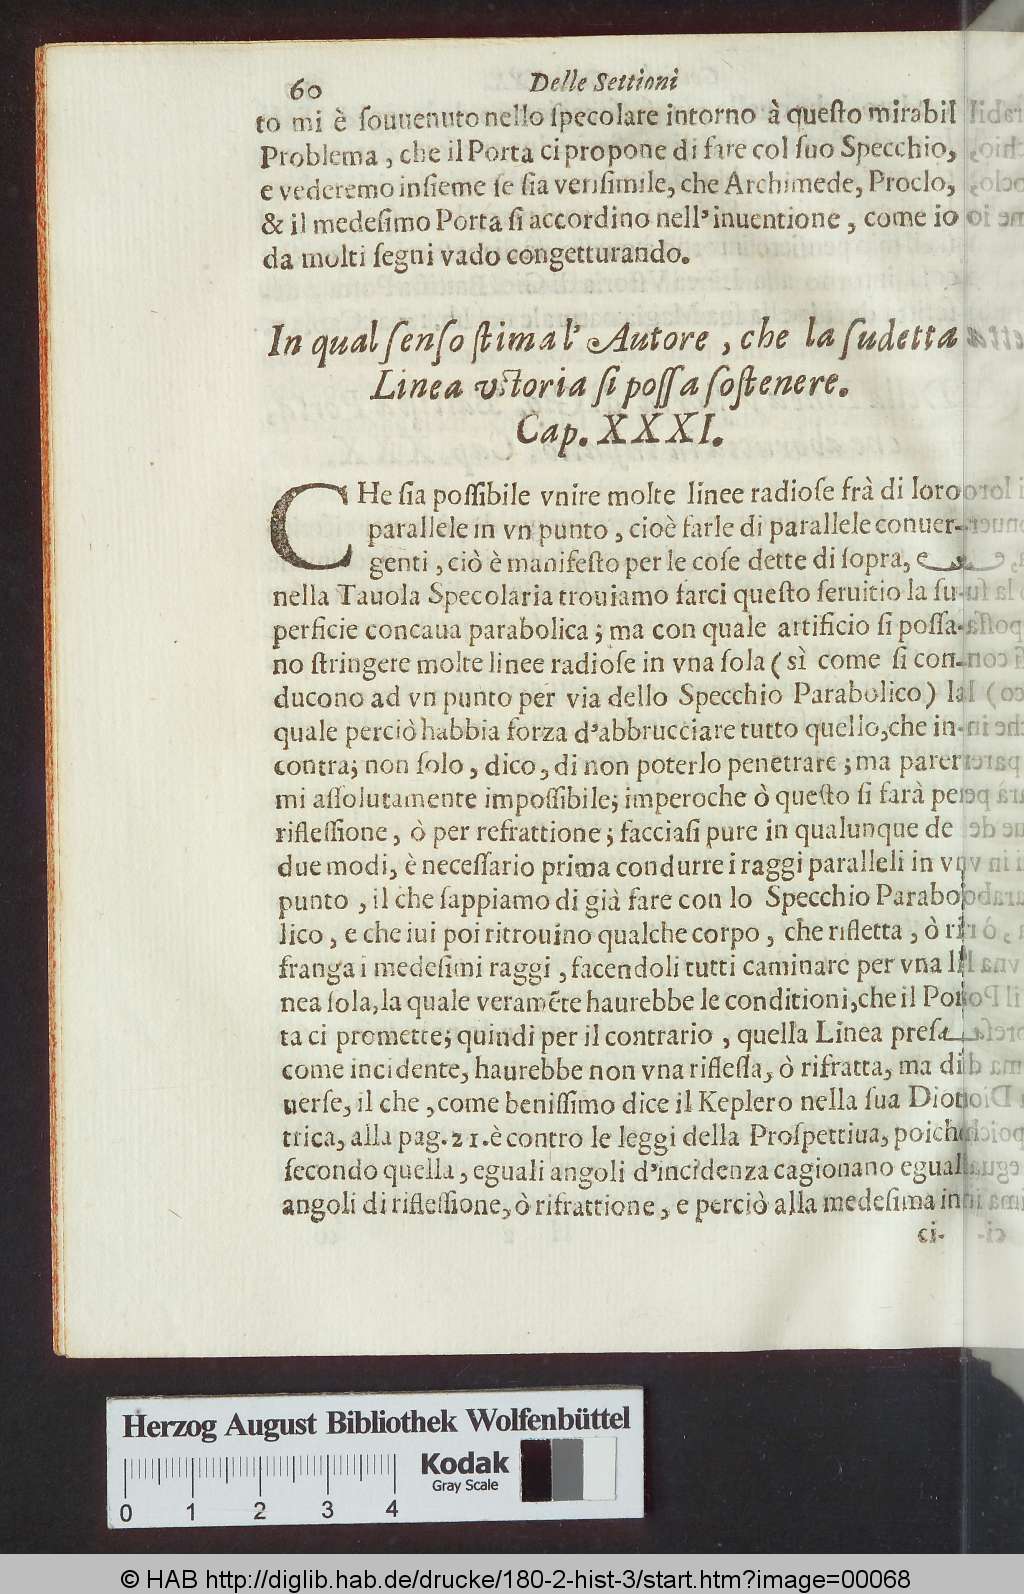 60 Delle Settioni
to mi è ſouuenuto nello ſpecolare intorno à queſto mirabil
Problema, che il Porta ci propone di fare col ſuo Specchio,
e vederemo inſieme ſe ſia veriſimile, che Archimede, Proclo,
& il medeſimo Porta ſi accordino nell'inuentione, come io
da molti ſegni vado congetturando.
In qual ſenſo ſtima l'Autore, che la ſudetta
Linea vſtoria ſi poſſa ſoſtenere.
Cap. XXXI.
CHe ſia poſſibile vnire molte linee radioſe frà di loro
parallele in vn punto, cioè farle di parallele conuer-
genti, ciò è manifeſto per le coſe dette di ſopra, e
nella Tauola Specolaria trouiamo farci queſto ſeruitio la ſu-
perficie concaua parabolica; ma con quale artificio ſi poſſa-
no ſtringere molte linee radioſe in vna ſola (sì come ſi con-
ducono ad vn punto per via dello Specchio Parabolico) la
quale perciò habbia forza d'abbrucciare tutto quello, che in-
contra; non ſolo, dico, di non poterlo penetrare; ma parer
mi aſſolutamente impoſſibile; imperoche ò queſto ſi farà per
rifleſſione, ò per refrattione; facciaſi pure in qualunque de
due modi, è neceſſario prima condurre i raggi paralleli in vn
punto, il che ſappiamo di già fare con lo Specchio Parabo
lico, e che iui poi ritrouino qualche corpo, che rifletta, ò ri
franga i medeſimi raggi, facendoli tutti caminare per vna li
nea ſola, la quale veramẽte haurebbe le conditioni, che il Por
ta ci promette; quindi per il contrario, quella Linea preſa
come incidente, haurebbe non vna rifleſſa, ò rifratta, ma di
uerſe, il che, come beniſſimo dice il Keplero nella ſua Diot
trica, alla pag. 21. è contro le leggi della Proſpettiua, poiche
ſecondo quella, eguali angoli d'incidenza cagionano eguali
angoli di rifleſſione, ò rifrattione, e perciò alla medeſima in
ci-
Herzog August Bibliothek Wolfenbüttel
Kodak
Gray Scale
0 1 2 3 4
© HAB http://diglib.hab.de/drucke/180-2-hist-3/start.htm?image=00068